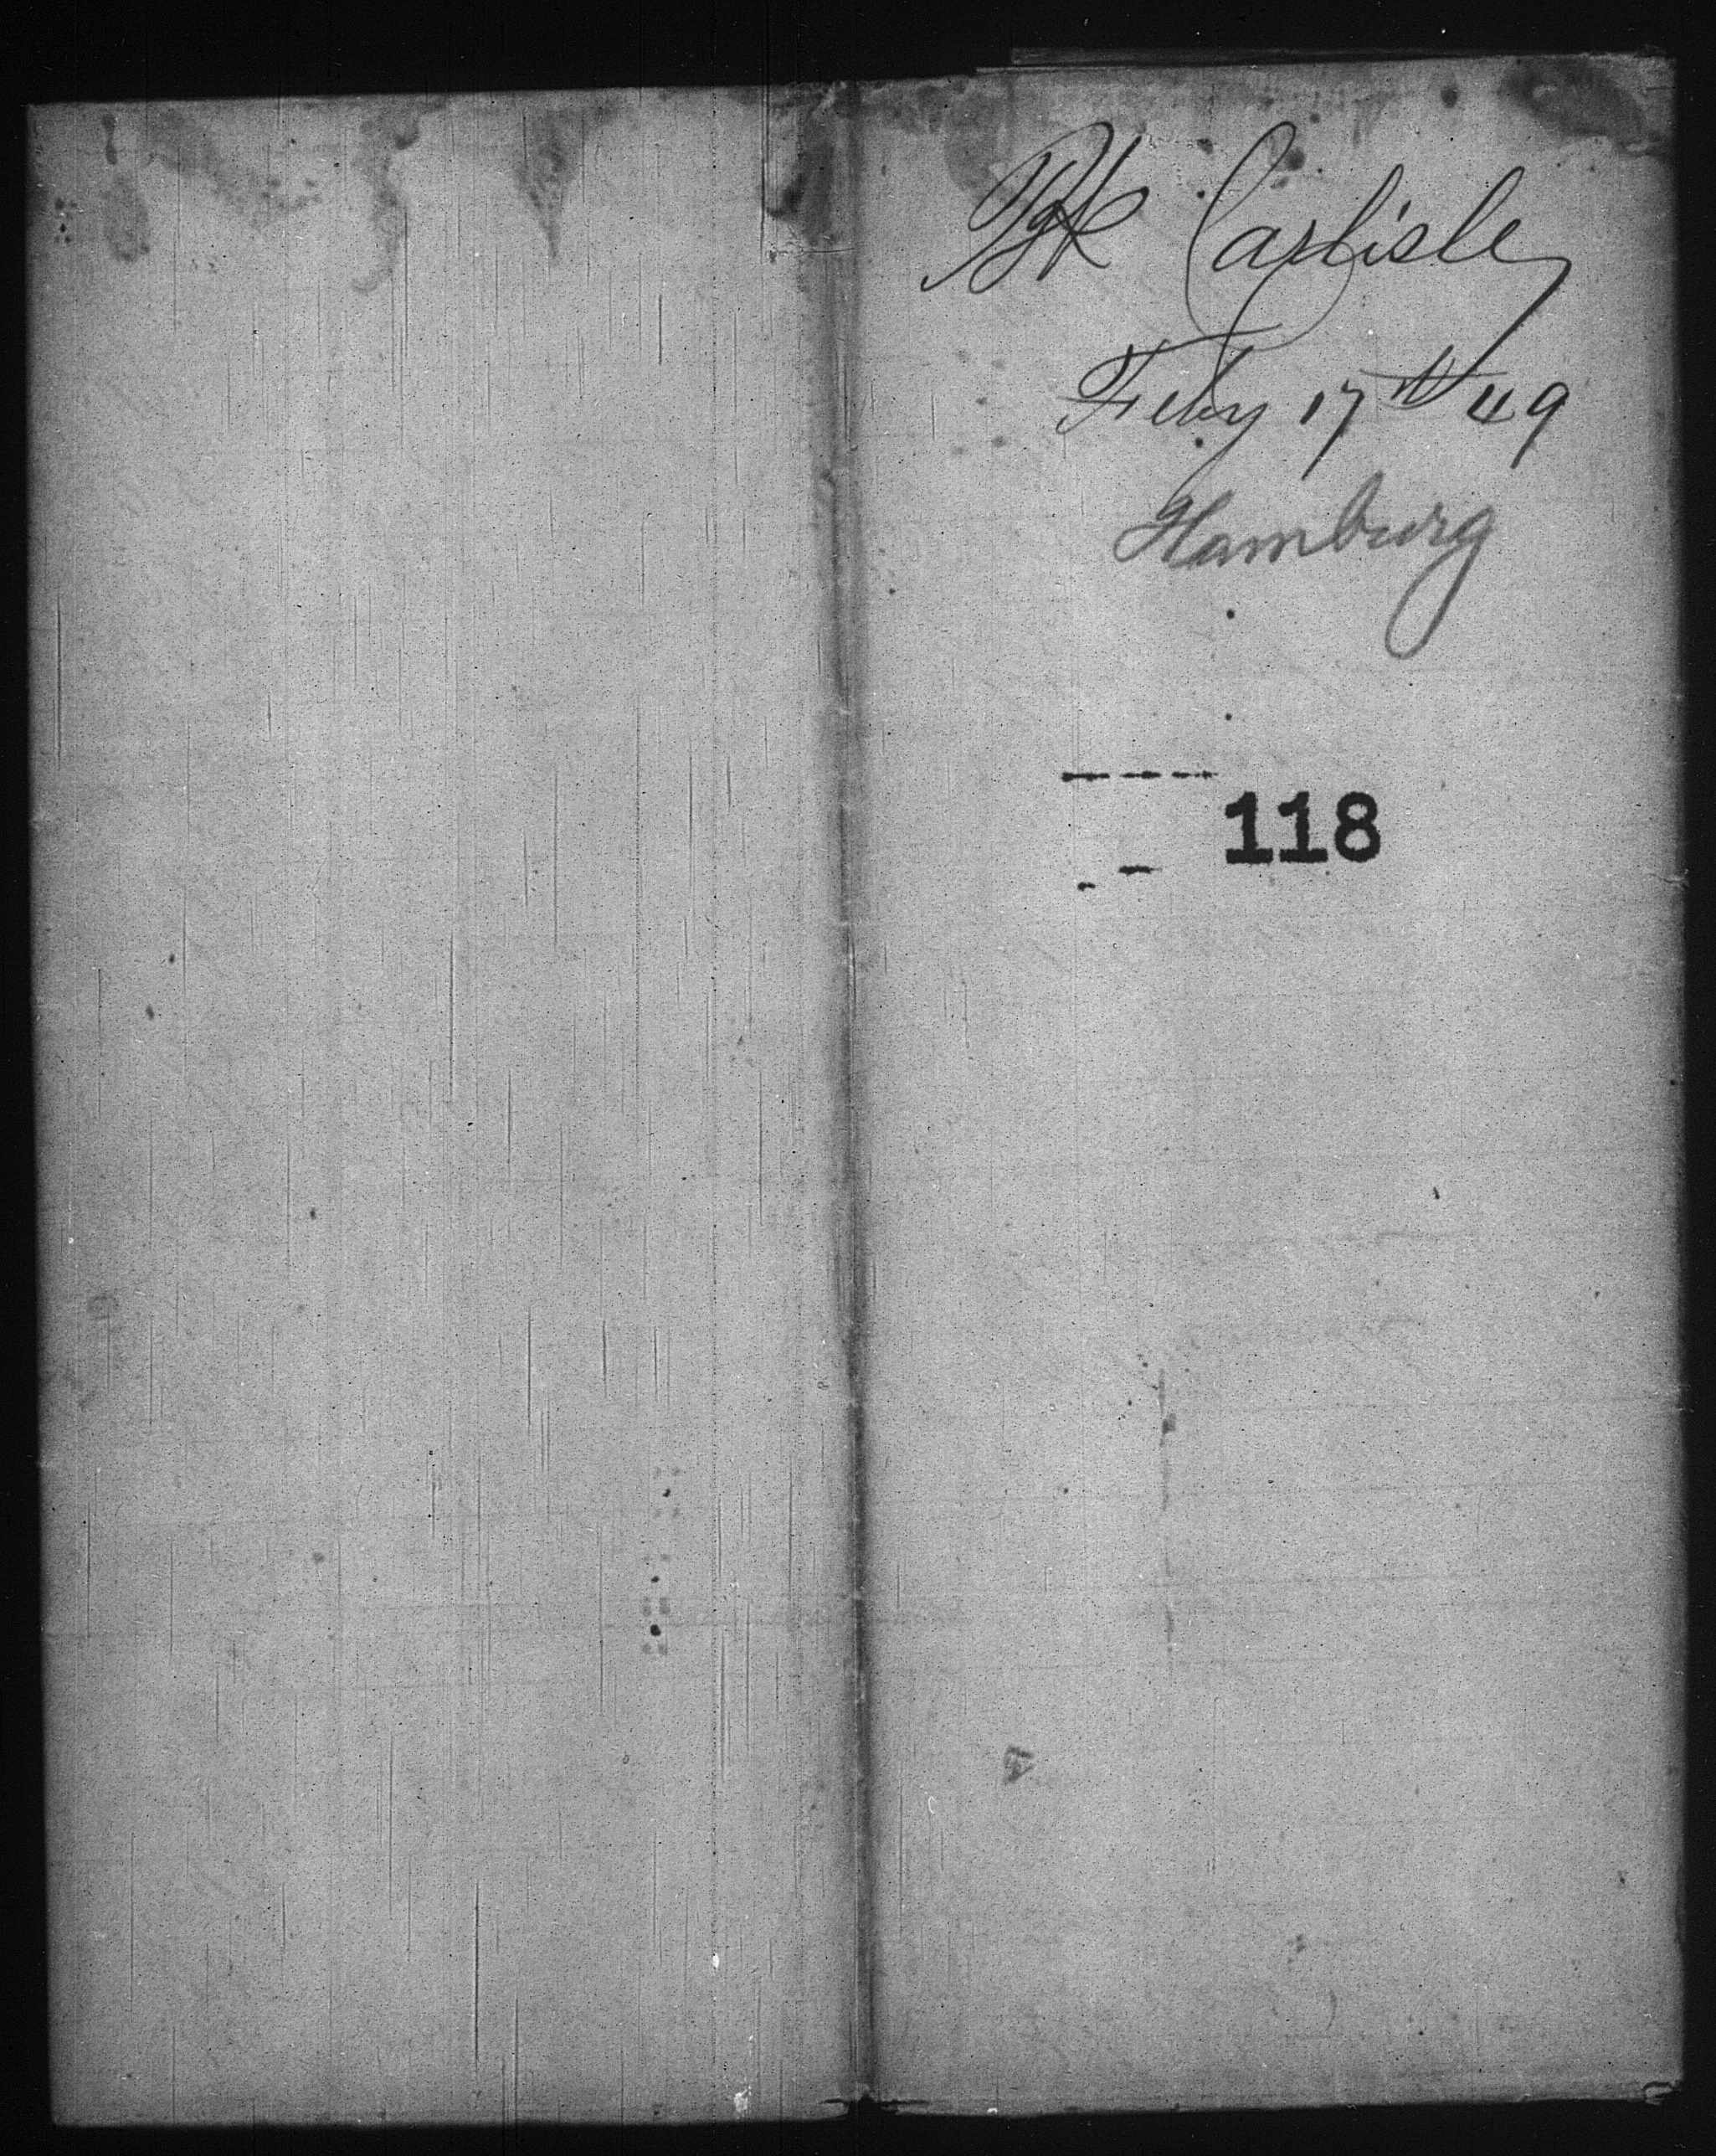 Bk Carlisle
Feby 17th 49
Hamburg
118